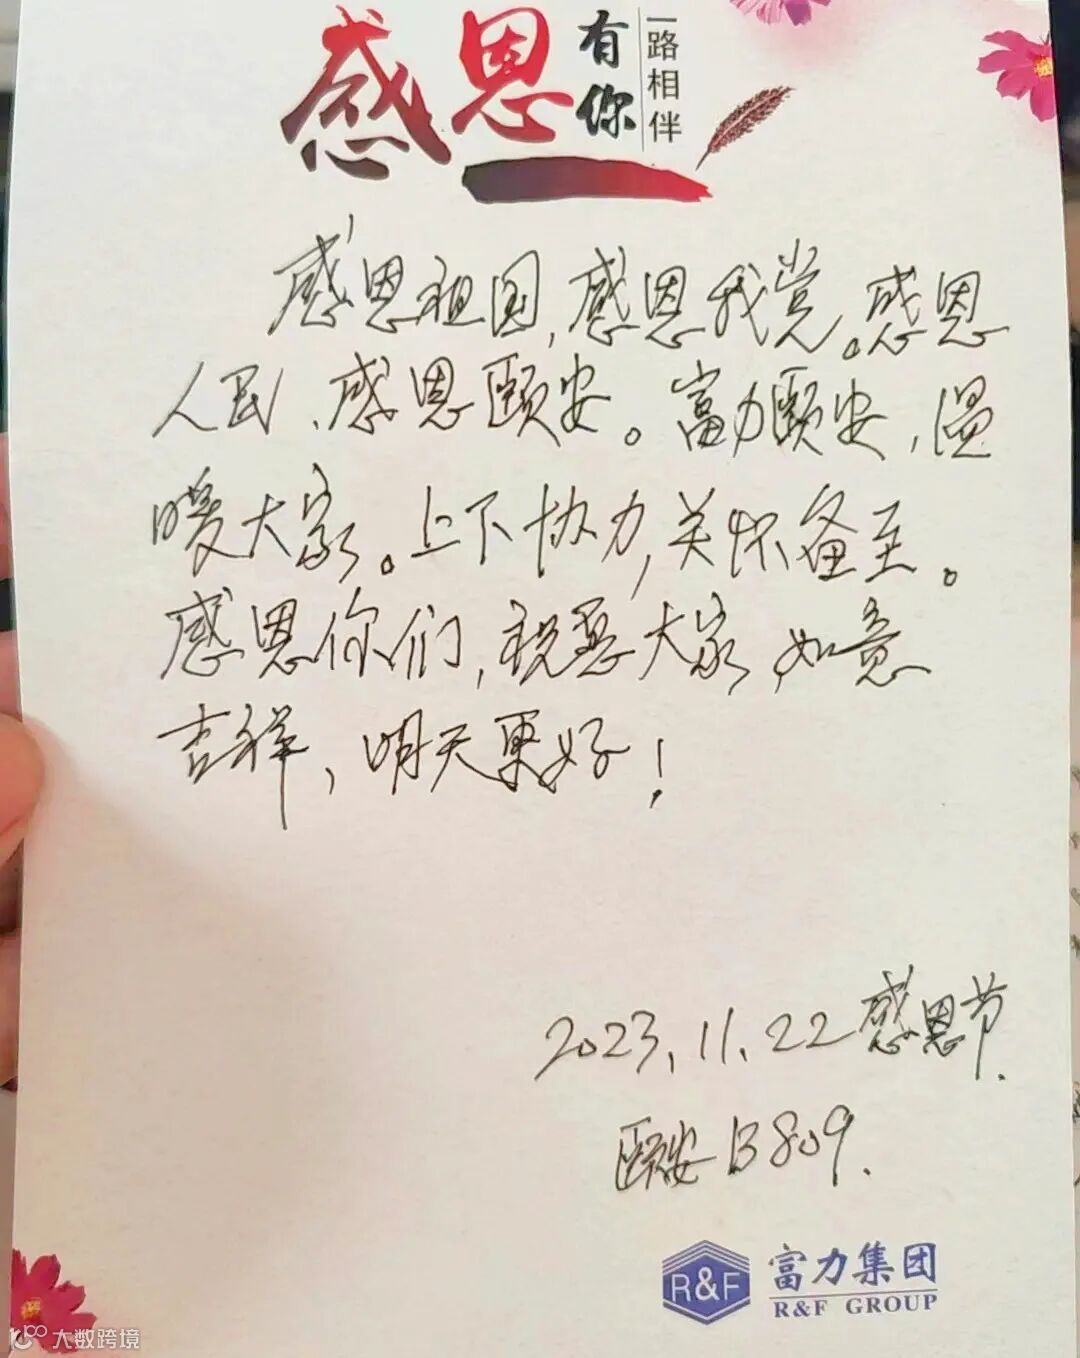 感恩
有你
一路相伴
感恩祖国,感恩我党。感恩
人民、感恩颐安。富力颐安,温
暖大家。上下协力,关怀备至。
感恩你们,祝愿大家 如意
吉祥,明天更好!
2023.11.22感恩节.
颐安B809.
R&F
富力集团
R&F GROUP
大数跨境